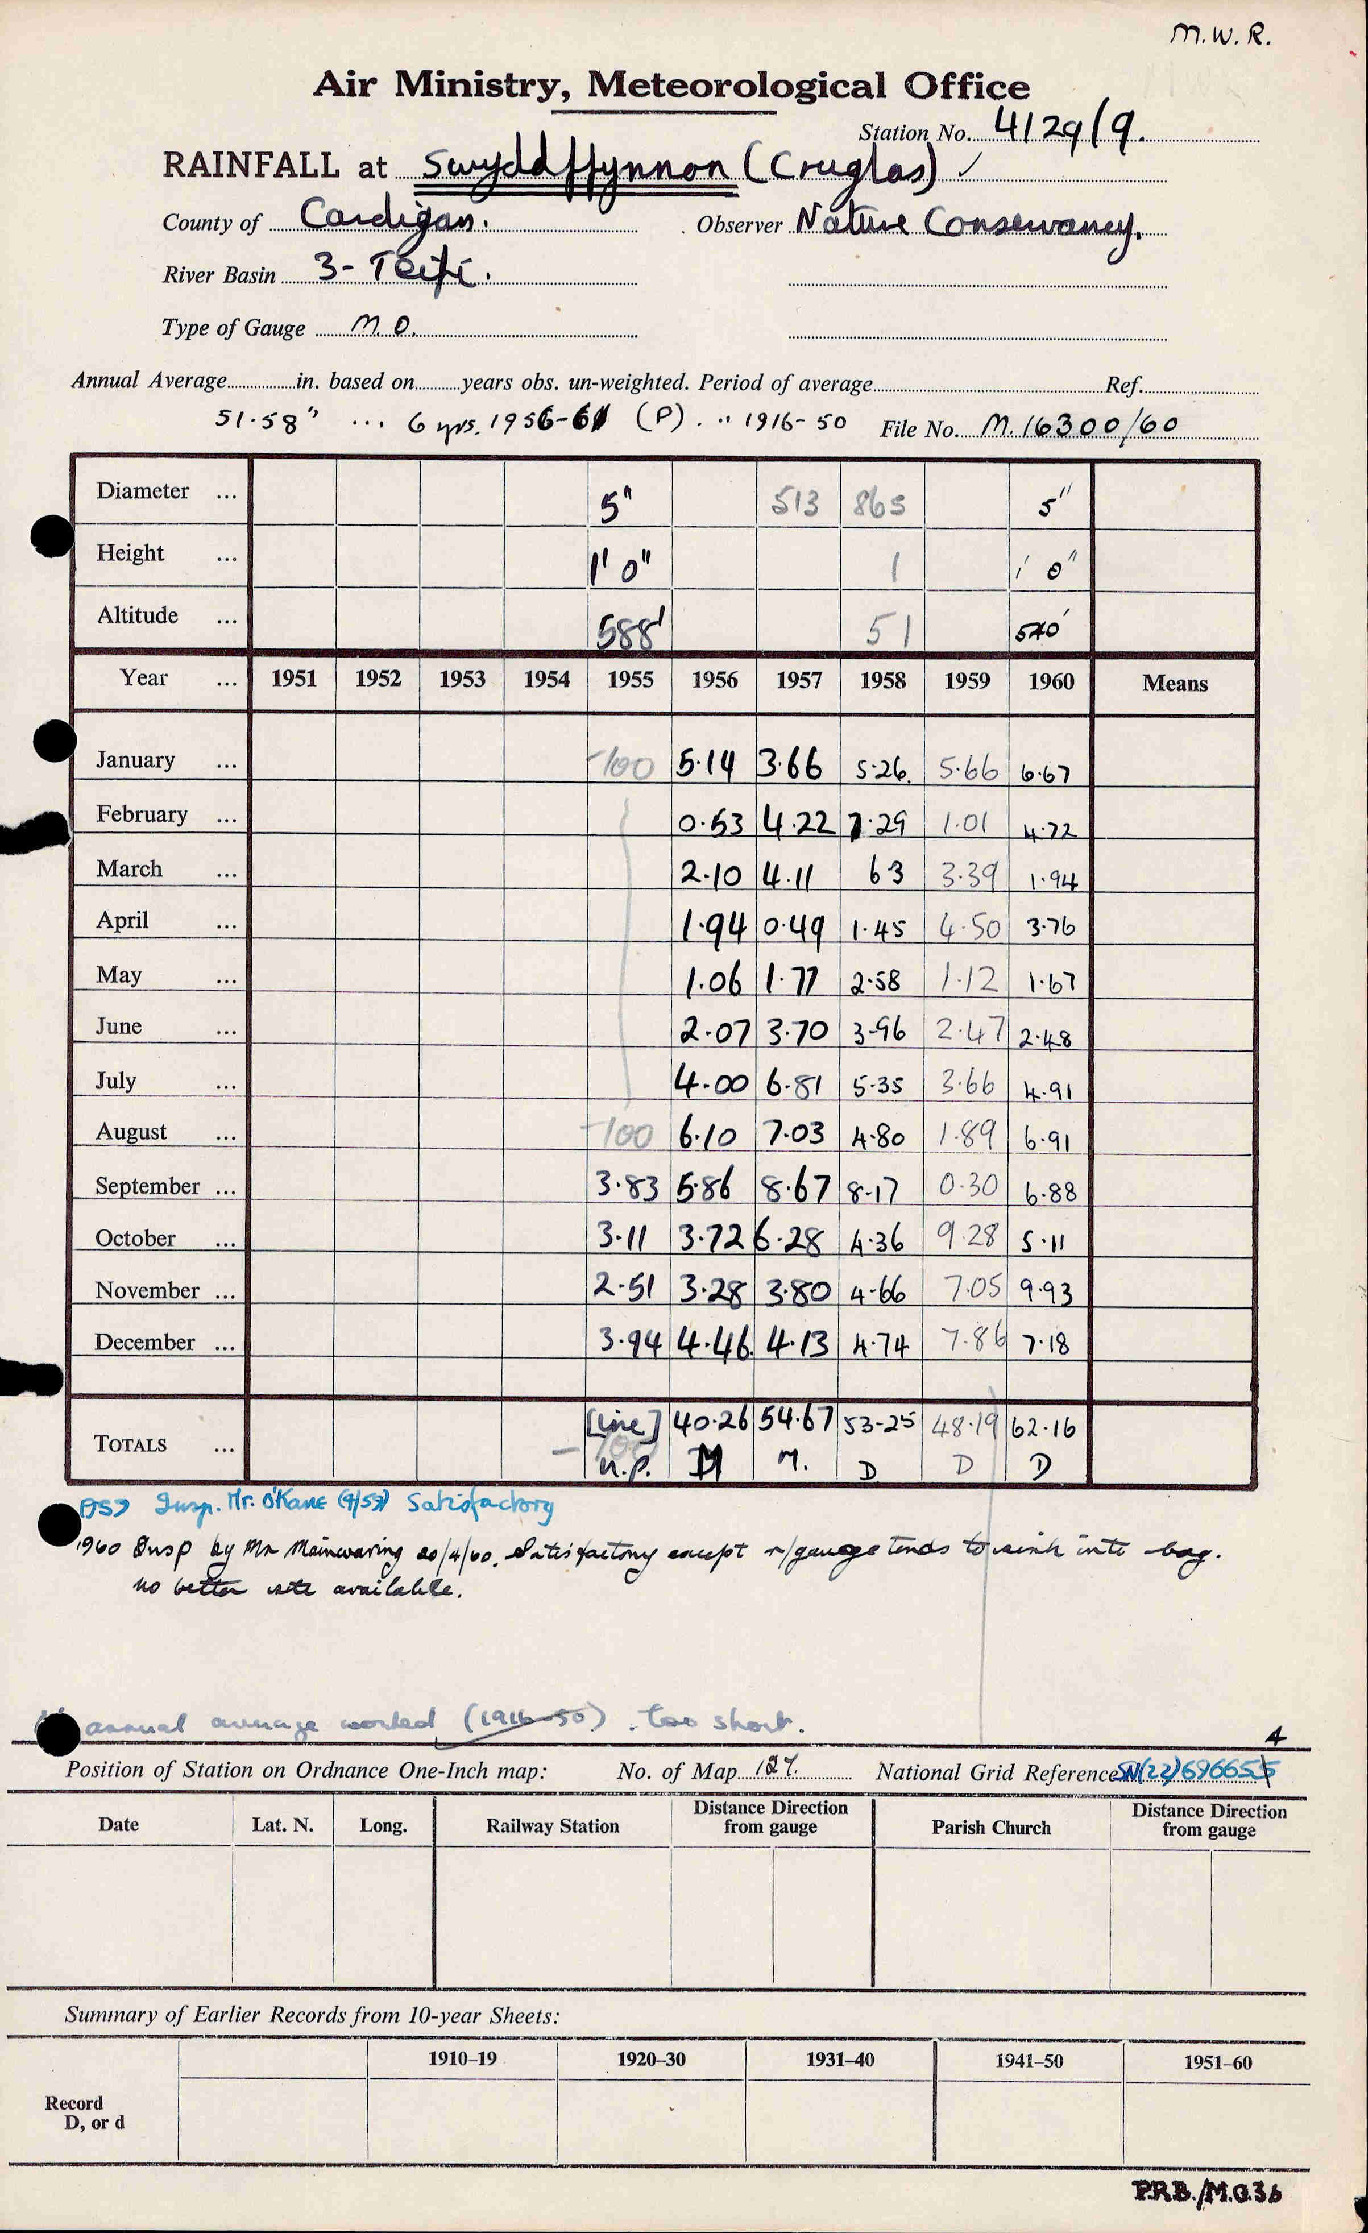 M.W.R.
Air Ministry, Meteorological Office
Station No. 4129/9.
RAINFALL at Swyddffynnon (Cruglas) ✓
County of Cardigan. Observer Nature Conservancy.
River Basin 3- Teifi.
Type of Gauge M.O.
Annual Average in. based on years obs. un-weighted. Period of average Ref.
51.58" ... 6 yrs. 1956-61 (P). " 1916-50 File No. M.16300/60
Diameter ... 5" 513 865 5"
Height ... 1' 0" 1 1' 0"
Altitude ... 588' 51 540'
Year ... 1951 1952 1953 1954 1955 1956 1957 1958 1959 1960 Means
January ... -100 5.14 3.66 5.26. 5.66 6.67
February ... 0.53 4.22 7.29 1.01 4.72
March ... 2.10 4.11 63 3.39 1.94
April ... 1.94 0.49 1.45 4.50 3.76
May ... 1.06 1.77 2.58 1.12 1.67
June ... 2.07 3.70 3.96 2.47 2.48
July ... 4.00 6.81 5.35 3.66 4.91
August ... -100 6.10 7.03 4.80 1.89 6.91
September ... 3.83 5.86 8.67 8.17 0.30 6.88
October ... 3.11 3.72 6.28 4.36 9.28 5.11
November ... 2.51 3.28 3.80 4.66 7.05 9.93
December ... 3.94 4.46. 4.13 4.74 7.86 7.18
[Line] 40.26 54.67 53-25 48.19 62.16
TOTALS ... -100
n.p. M M. D D D
1957 Insp. Mr. O'Kane (9/57) Satisfactory
1960 Insp by Mr Mainwaring 20/4/60. Satisfactory except r/gauge tends to sink into bog.
no better site available.
annual average worked (1916-50). too short.
4
Position of Station on Ordnance One-Inch map: No. of Map 127. National Grid Reference SN(22)696655
Date Lat. N. Long. Railway Station Distance Direction from gauge Parish Church Distance Direction from gauge
Summary of Earlier Records from 10-year Sheets:
1910–19 1920–30 1931–40 1941–50 1951–60
Record
D, or d
P.R.B./M.O.36